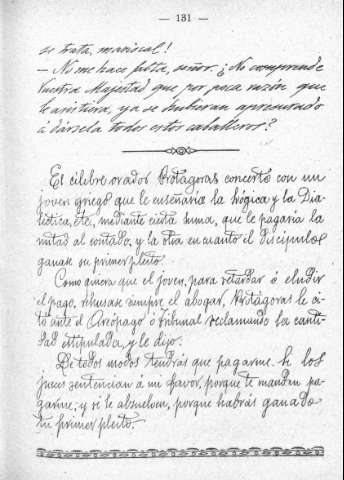 — 131 —
se trata, mariscal!
— No me hace falta, señor. ¿No comprende
Vuestra Majestad que por poca razón que
le asistiera, ya se hubieran apresurado
á dársela todos estos caballeros?
El célebre orador Protágoras concertó con un
joven griego que le enseñaría la Lógica y la Dia-
léctica, etc., mediante cierta suma, que le pagaría la
mitad al contado, y la otra en cuanto el discípulo
ganase su primer pleito.
Como quiera que el joven, para retardar ó eludir
el pago, rehusase siempre el abogar, Protágoras le ci-
tó ante el Areópago ó Tribunal reclamando la canti-
dad estipulada, y le dijo:
De todos modos tendrás que pagarme. Si los
jueces sentencian á mi favor, porque te mandan pa-
garme; y si te absuelven, porque habrás ganado
tu primer pleito.